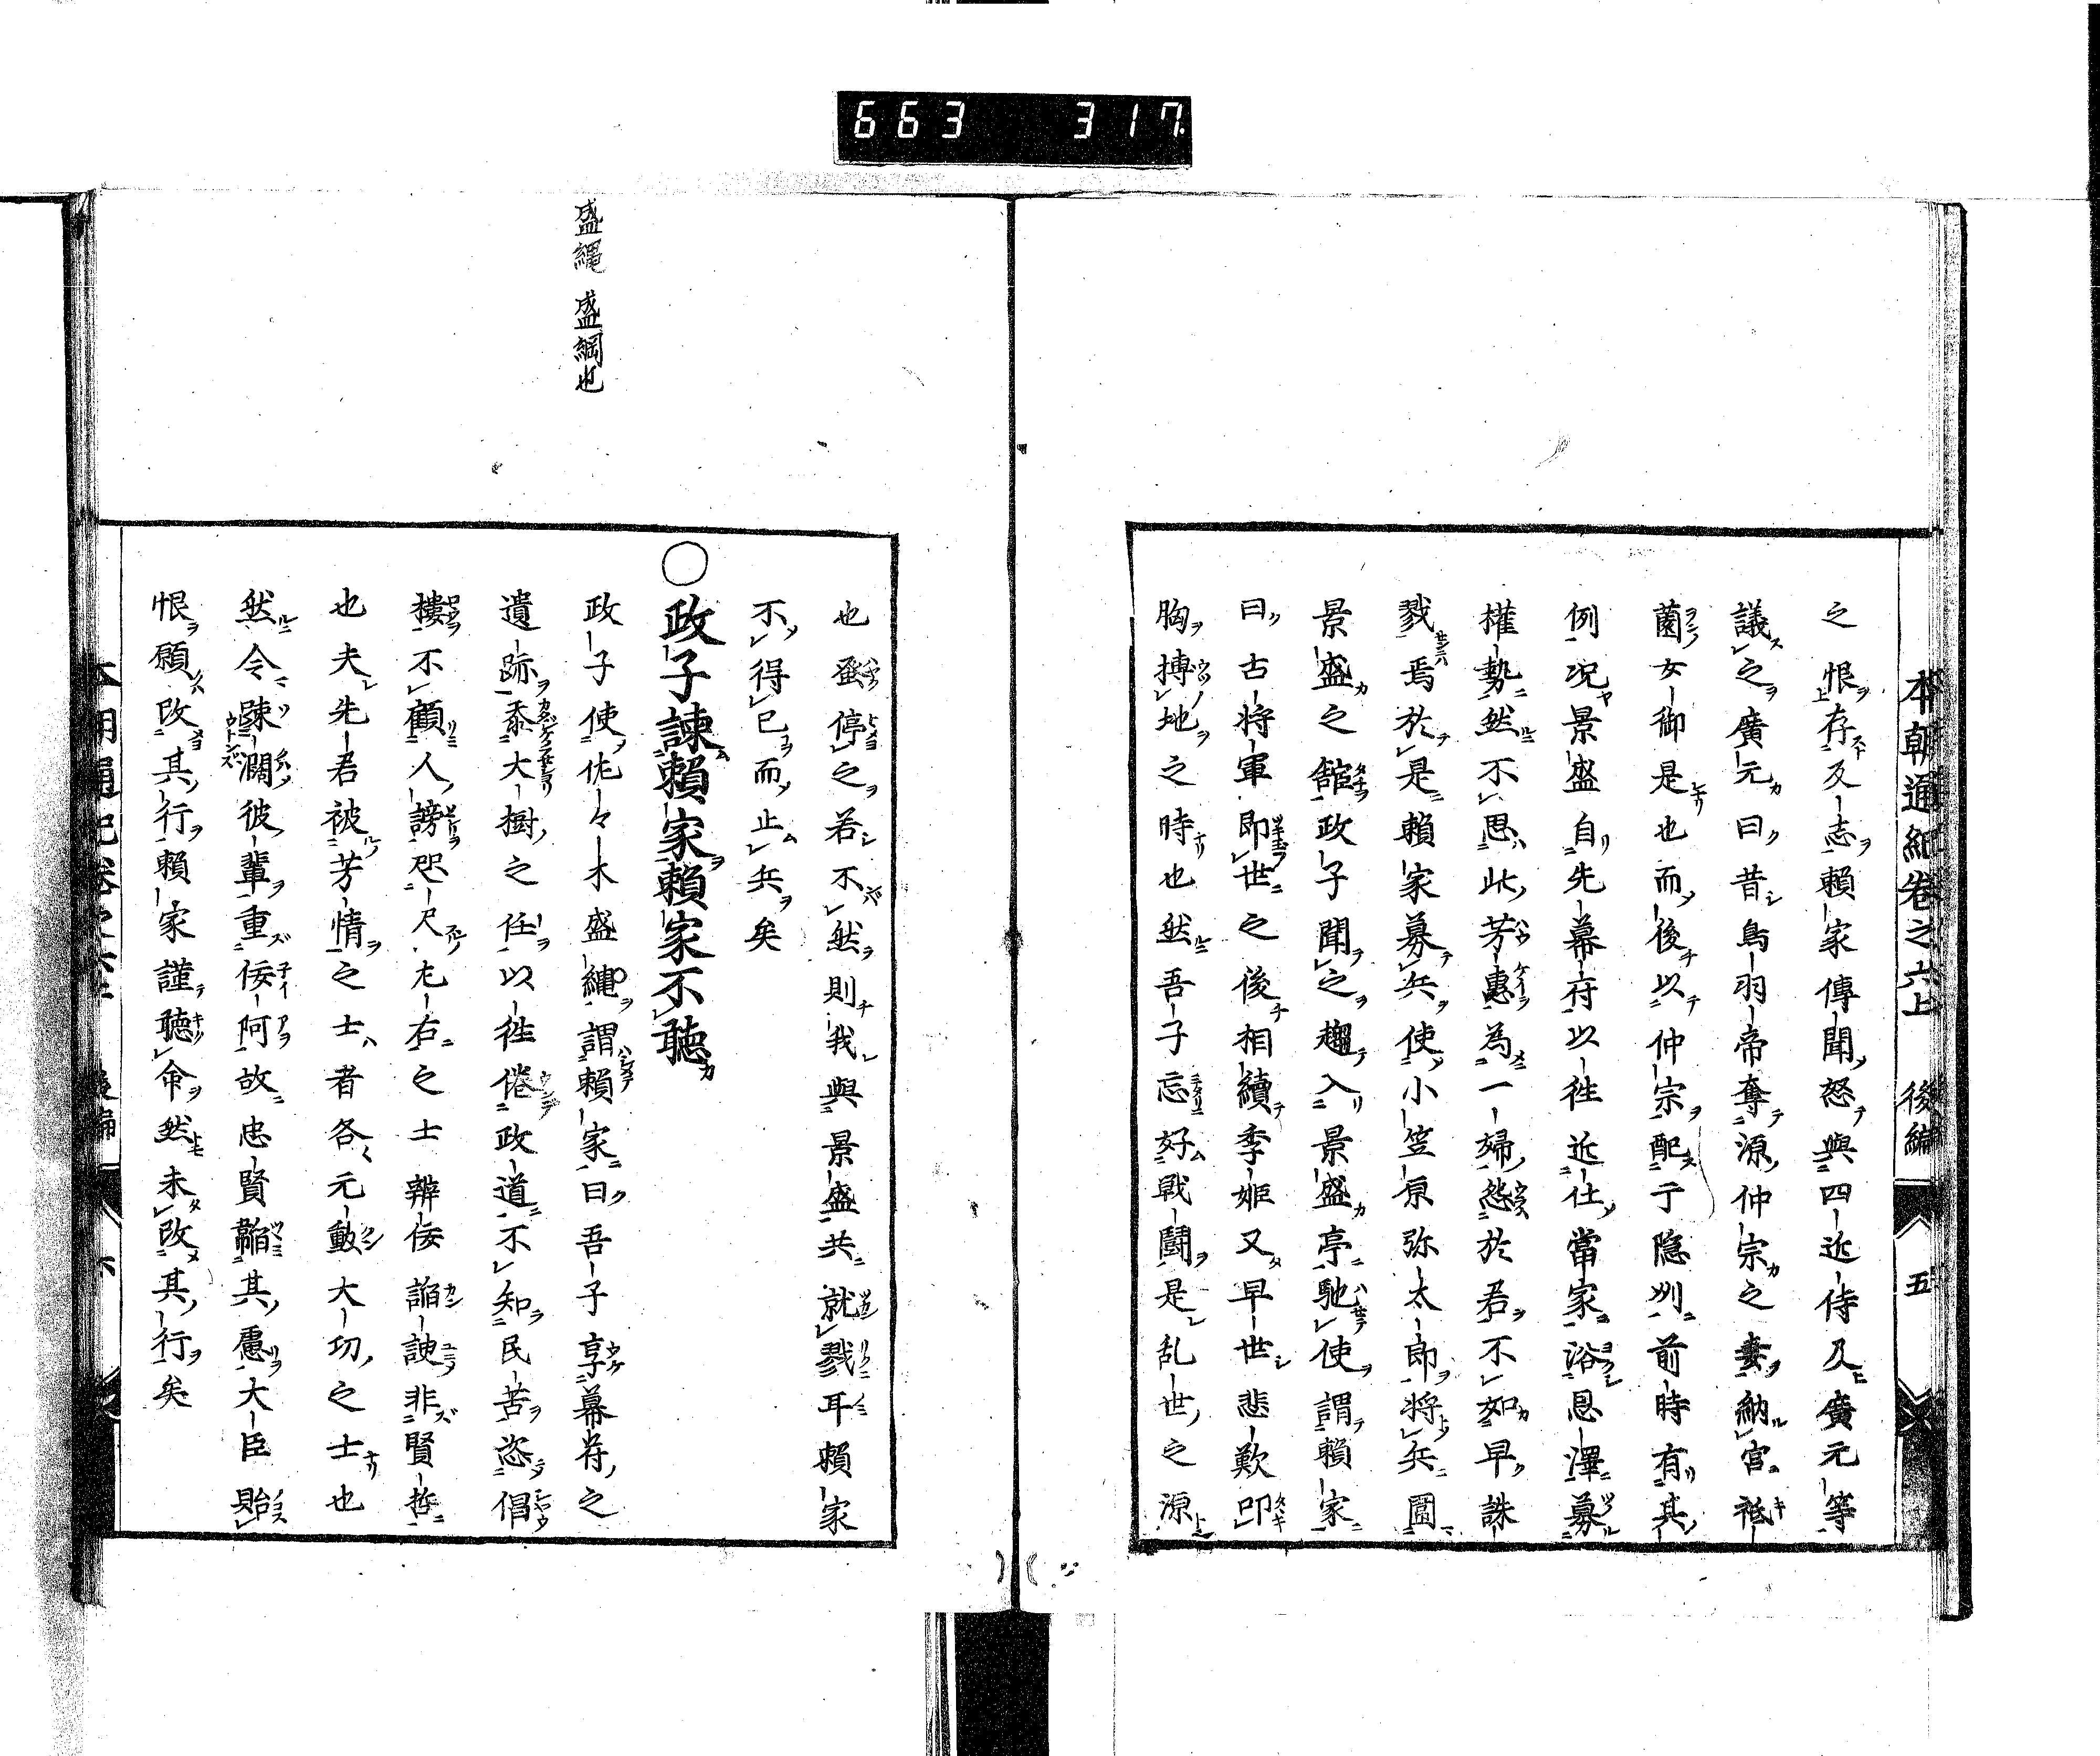 663 317
本朝通紀卷之六上 後編 五
之恨存及志賴家傳聞怒與四近侍及廣元等
議之廣元曰昔鳥羽帝奪源仲宗之妻納宮祗
薗女御是也而後以仲宗配于隱州前時有其
例况景盛自先幕府以徃近仕當家浴恩澤募
權勢然不思此芳惠為一婦怨於君不如早誅
戮焉於是賴家募兵使小笠原弥太郎将兵圍
景盛之舘政子聞之趨入景盛亭馳使謂賴家
曰古将軍即世之後相續季姬又早世悲歎叩
胸搏地之時也然吾子忘好戰鬪是乱世之源
也蚤停之若不然則我與景盛共就戮耳賴家
不得已而止兵矣
○政子諫賴家賴家不聽
政子使佐々木盛繩謂賴家曰吾子享幕府之
遺跡忝大樹之任以徃倦政道不知民苦恣倡
樓不顧人謗咫尺左右之士辨佞謟諛非賢哲
也夫先君被芳情之士者各元勳大功之士也
然今踈濶彼輩重佞阿故忠賢韜其慮大臣貽
恨願改其行賴家謹聽命然未改其行矣
盛繩 盛綱也